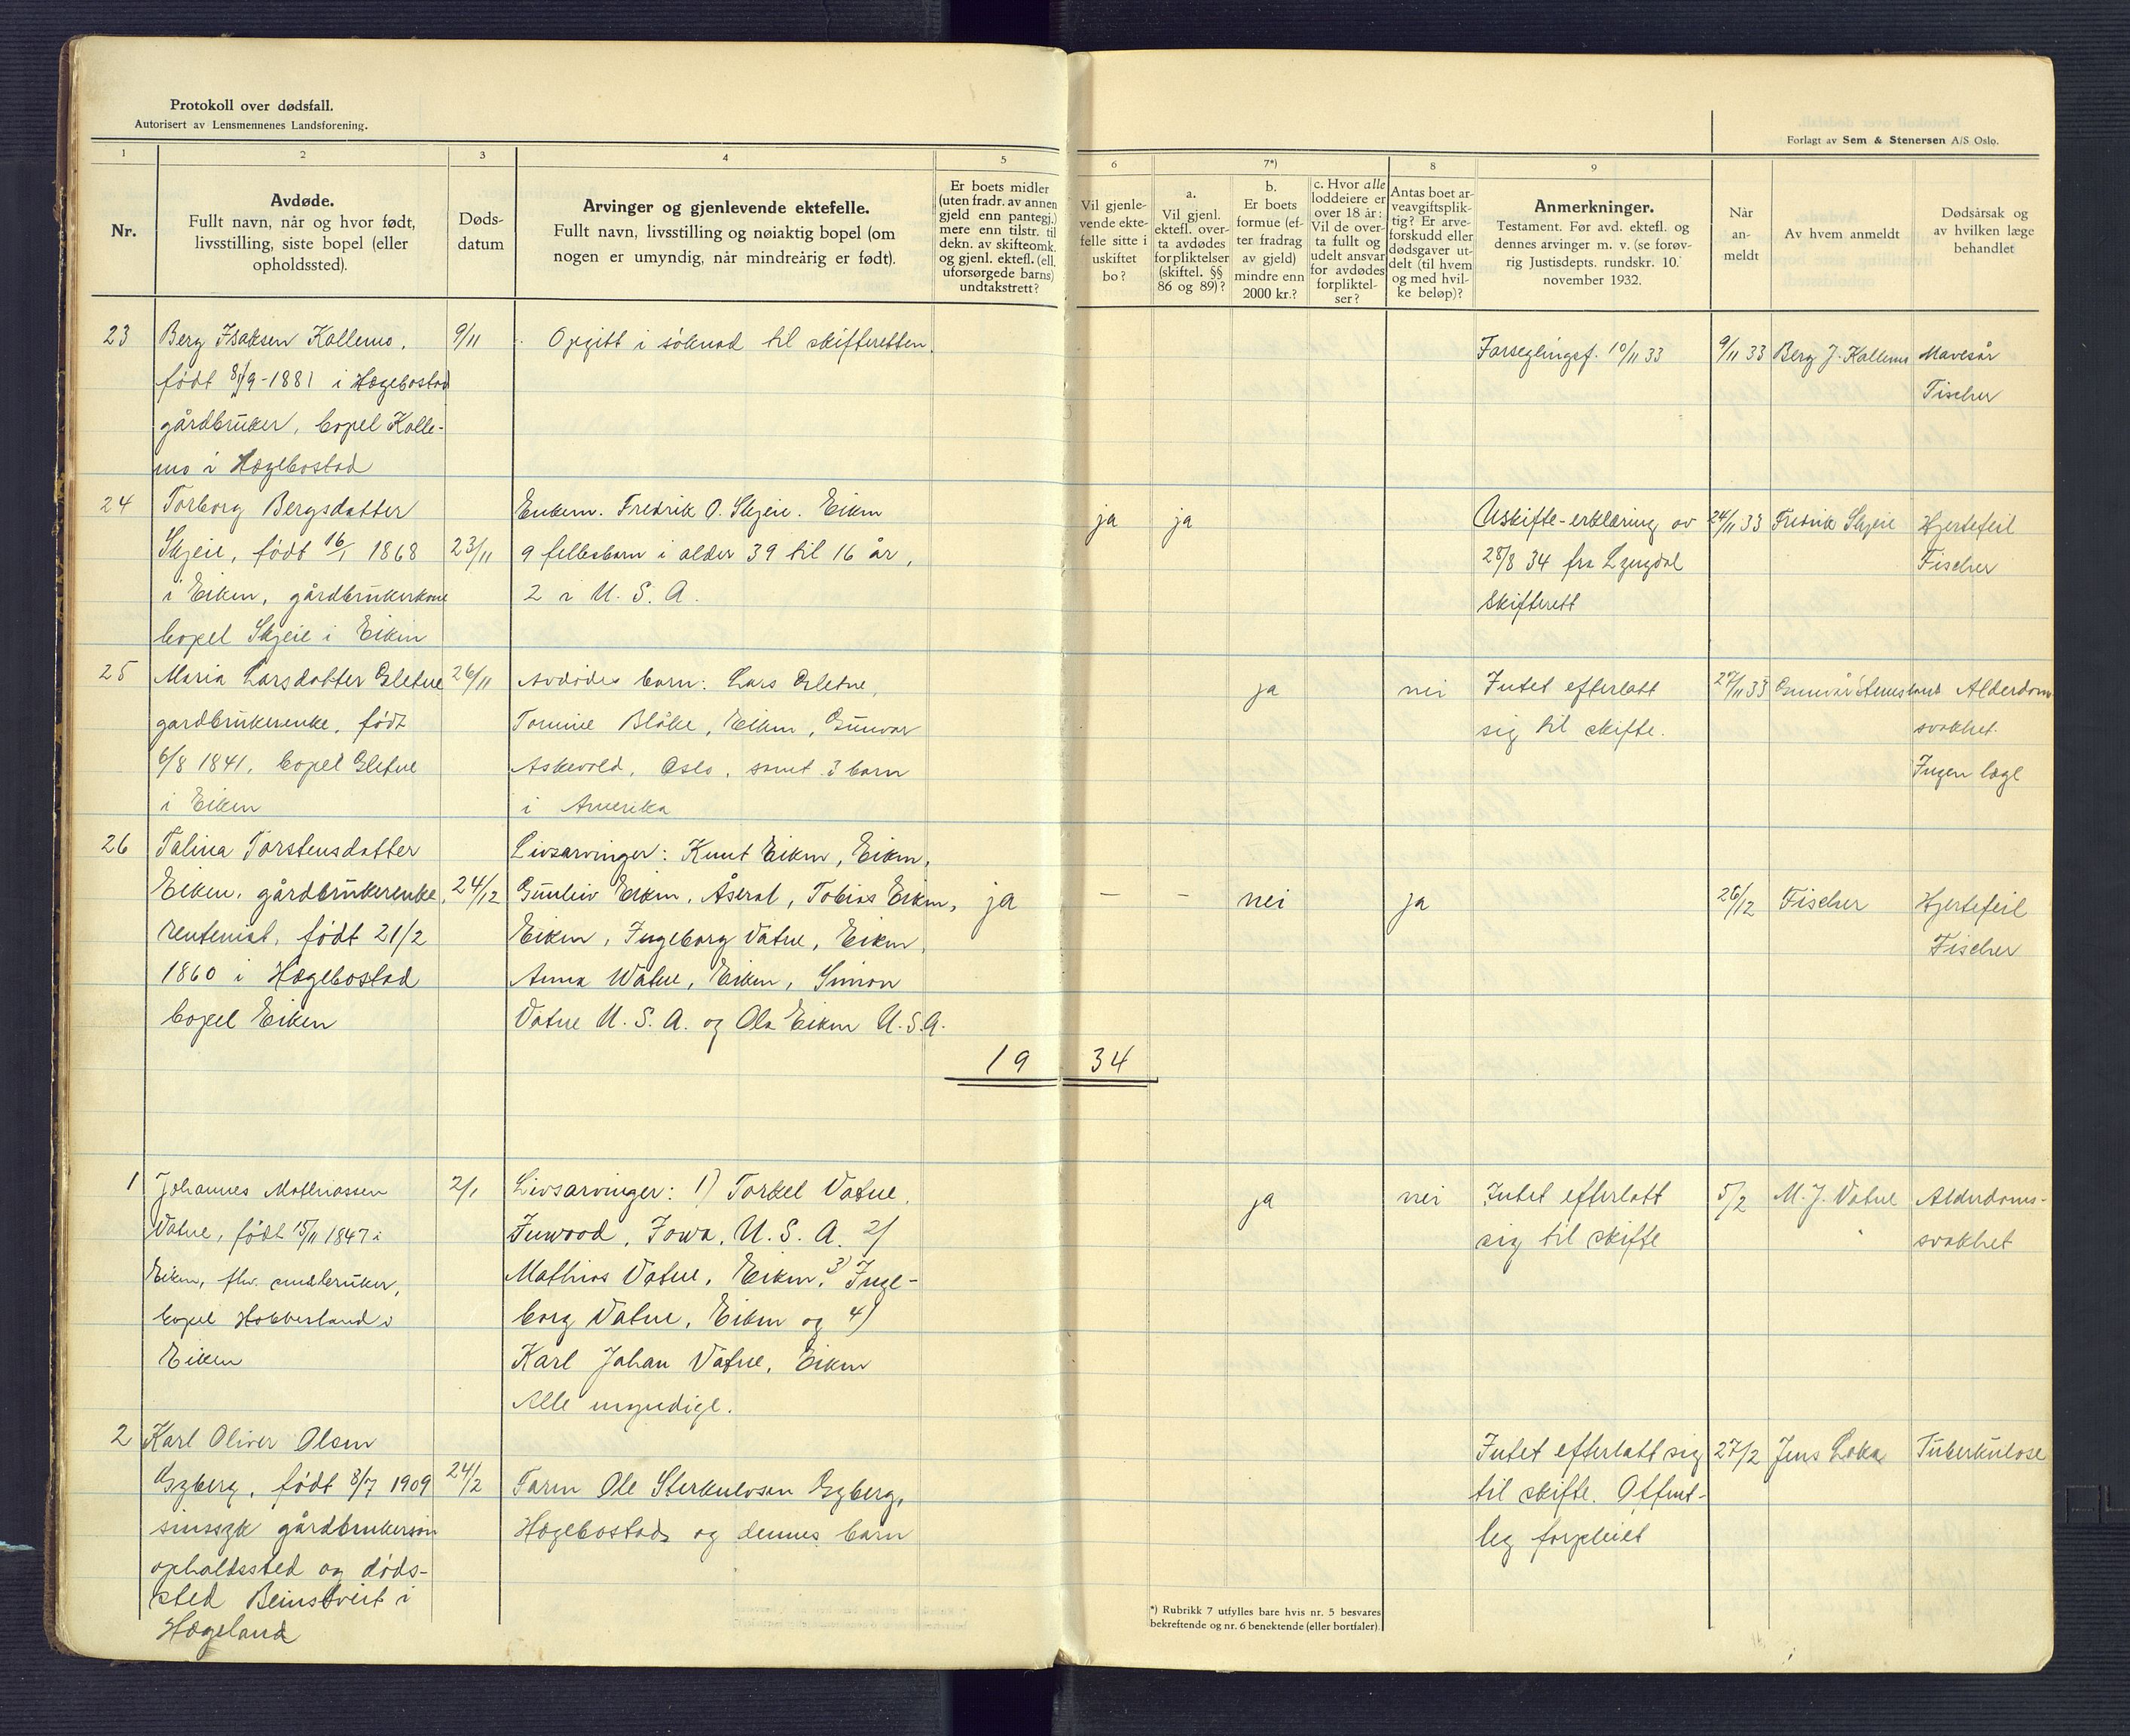 Protokoll over dødsfall.
Autorisert av Lensmennenes Landsforening.
Forlagt av Sem & Stenersen A/S Oslo.
1
2
3
4
5
6
7*)
8
9
Nr.
Avdøde.
Fullt navn, når og hvor født,
livsstilling, siste bopel (eller
opholdssted).
Døds-
datum
Arvinger og gjenlevende ektefelle.
Fullt navn, livsstilling og nøiaktig bopel (om
nogen er umyndig, når mindreårig er født).
Er boets midler
(uten fradr. av annen
gjeld enn pantegj.)
mere enn tilstr. til
dekn. av skifteomk.
og gjenl. ektefl. (ell.
uforsørgede barns)
undtakstrett?
Vil gjenle-
vende ekte-
felle sitte i
uskiftet
bo?
a.
Vil gjenl.
ektefl. over-
ta avdødes
forpliktelser
(skiftel. §§
86 og 89)?
b.
Er boets
formue (ef-
ter fradrag
av gjeld)
mindre enn
2000 kr.?
c. Hvor alle
loddeiere er
over 18 år:
Vil de over-
ta fullt og
udelt ansvar
for avdødes
forpliktel-
ser?
Antas boet ar-
veavgiftsplik-
tig? Er arve-
forskudd eller
dødsgaver ut-
delt (til hvem
og med hvil-
ke beløp)?
Anmerkninger.
Testament. Før avd. ektefl. og
dennes arvinger m. v. (se forøv-
rig Justisdepts. rundskr. 10.
november 1932.
Når
an-
meldt
Av hvem anmeldt
Dødsårsak og
av hvilken læge
behandlet
23
Berg Isaksen Kollemo,
født 8/9-1881 i Hægebostad
gårdbruker, bopel Kolle-
mo i Hægebostad
9/11
Opgitt i søknad til skifteretten.
Forseglingsf. 10/11 33
9/11 33
Berg J. Kollemo
Mavesår
Fischer
24
Torborg Bergsdatter
Skjeie, født 16/1 1868
i Eiken, gårdbrukerkone
bopel Skjeie i Eiken
23/11
Enkem. Fredrik O. Skjeie. Eiken
9 fellesbarn i alder 39 til 16 år,
2 i U. S. A.
ja
ja
Uskifte-erklæring av
28/8 34 fra Lyngdal
Skifterett
24/11 33
Fredrik Skjeie
Hjertefeil
Fischer
25
Maria Larsdatter Gletne
gardbrukerenke, født
6/8 1841, bopel Gletne
i Eiken
26/11
Avdødes barn: Lars Gletne,
Tomine Blåke, Eiken, Gunvor
Askevold, Oslo, samt 3 barn
i Amerika
ja
nei
Intet efterlatt
sig til skifte.
27/11 33
Alderdoms
svakhet.
Ingen læge
26
Talina Torstensdatter
Eiken, gårdbrukerenke,
rentenist, født 21/2
1860 i Hægebostad
bopel Eiken
24/12
Livsarvinger: Knut Eiken, Eiken,
Gunleiv Eiken, Åseral, Tobias Eiken,
Eiken, Ingeborg Vatne, Eiken,
Anna Watne, Eiken, Simon
Vatne U. S. A. og Ola Eiken U.S.A.
ja
—
-
nei
ja
26/12
Fischer
Hjertefeil
Fischer
19 34
1
Johannes Mathiassen
Vatne, født 15/11 1847 i
Eiken, fhv. småbruker,
bopel Hobbesland i
Eiken
2/1
Livsarvinger: 1) Torkel Vatne,
Inwood, Iowa, U. S. A. 2)
Mathias Vatne, Eiken, 3) Inge-
borg Vatne, Eiken og 4)
Karl Johan Vatne, Eiken
Alle myndige.
ja
nei
Intet efterlatt
sig til skifte
5/2
M. J. Vatne
Alderdoms-
svakhet
2
Karl Oliver Olsen
Gyberg, født 8/7 1909
sinssyk gårdbrukersøn
opholdssted og døds-
sted Beinstveit i
Hægeland
24/2
Faren Ole Sterkulvsen Gyberg,
Hægebostad, og dennes barn
Intet efterlatt sig
til skifte. Offent-
leg forpleiet
27/2
Jens Loka
Tuberkulose
*) Rubrikk 7 utfylles bare hvis nr. 5 besvares
bekreftende og nr. 6 benektende (eller bortfaler).